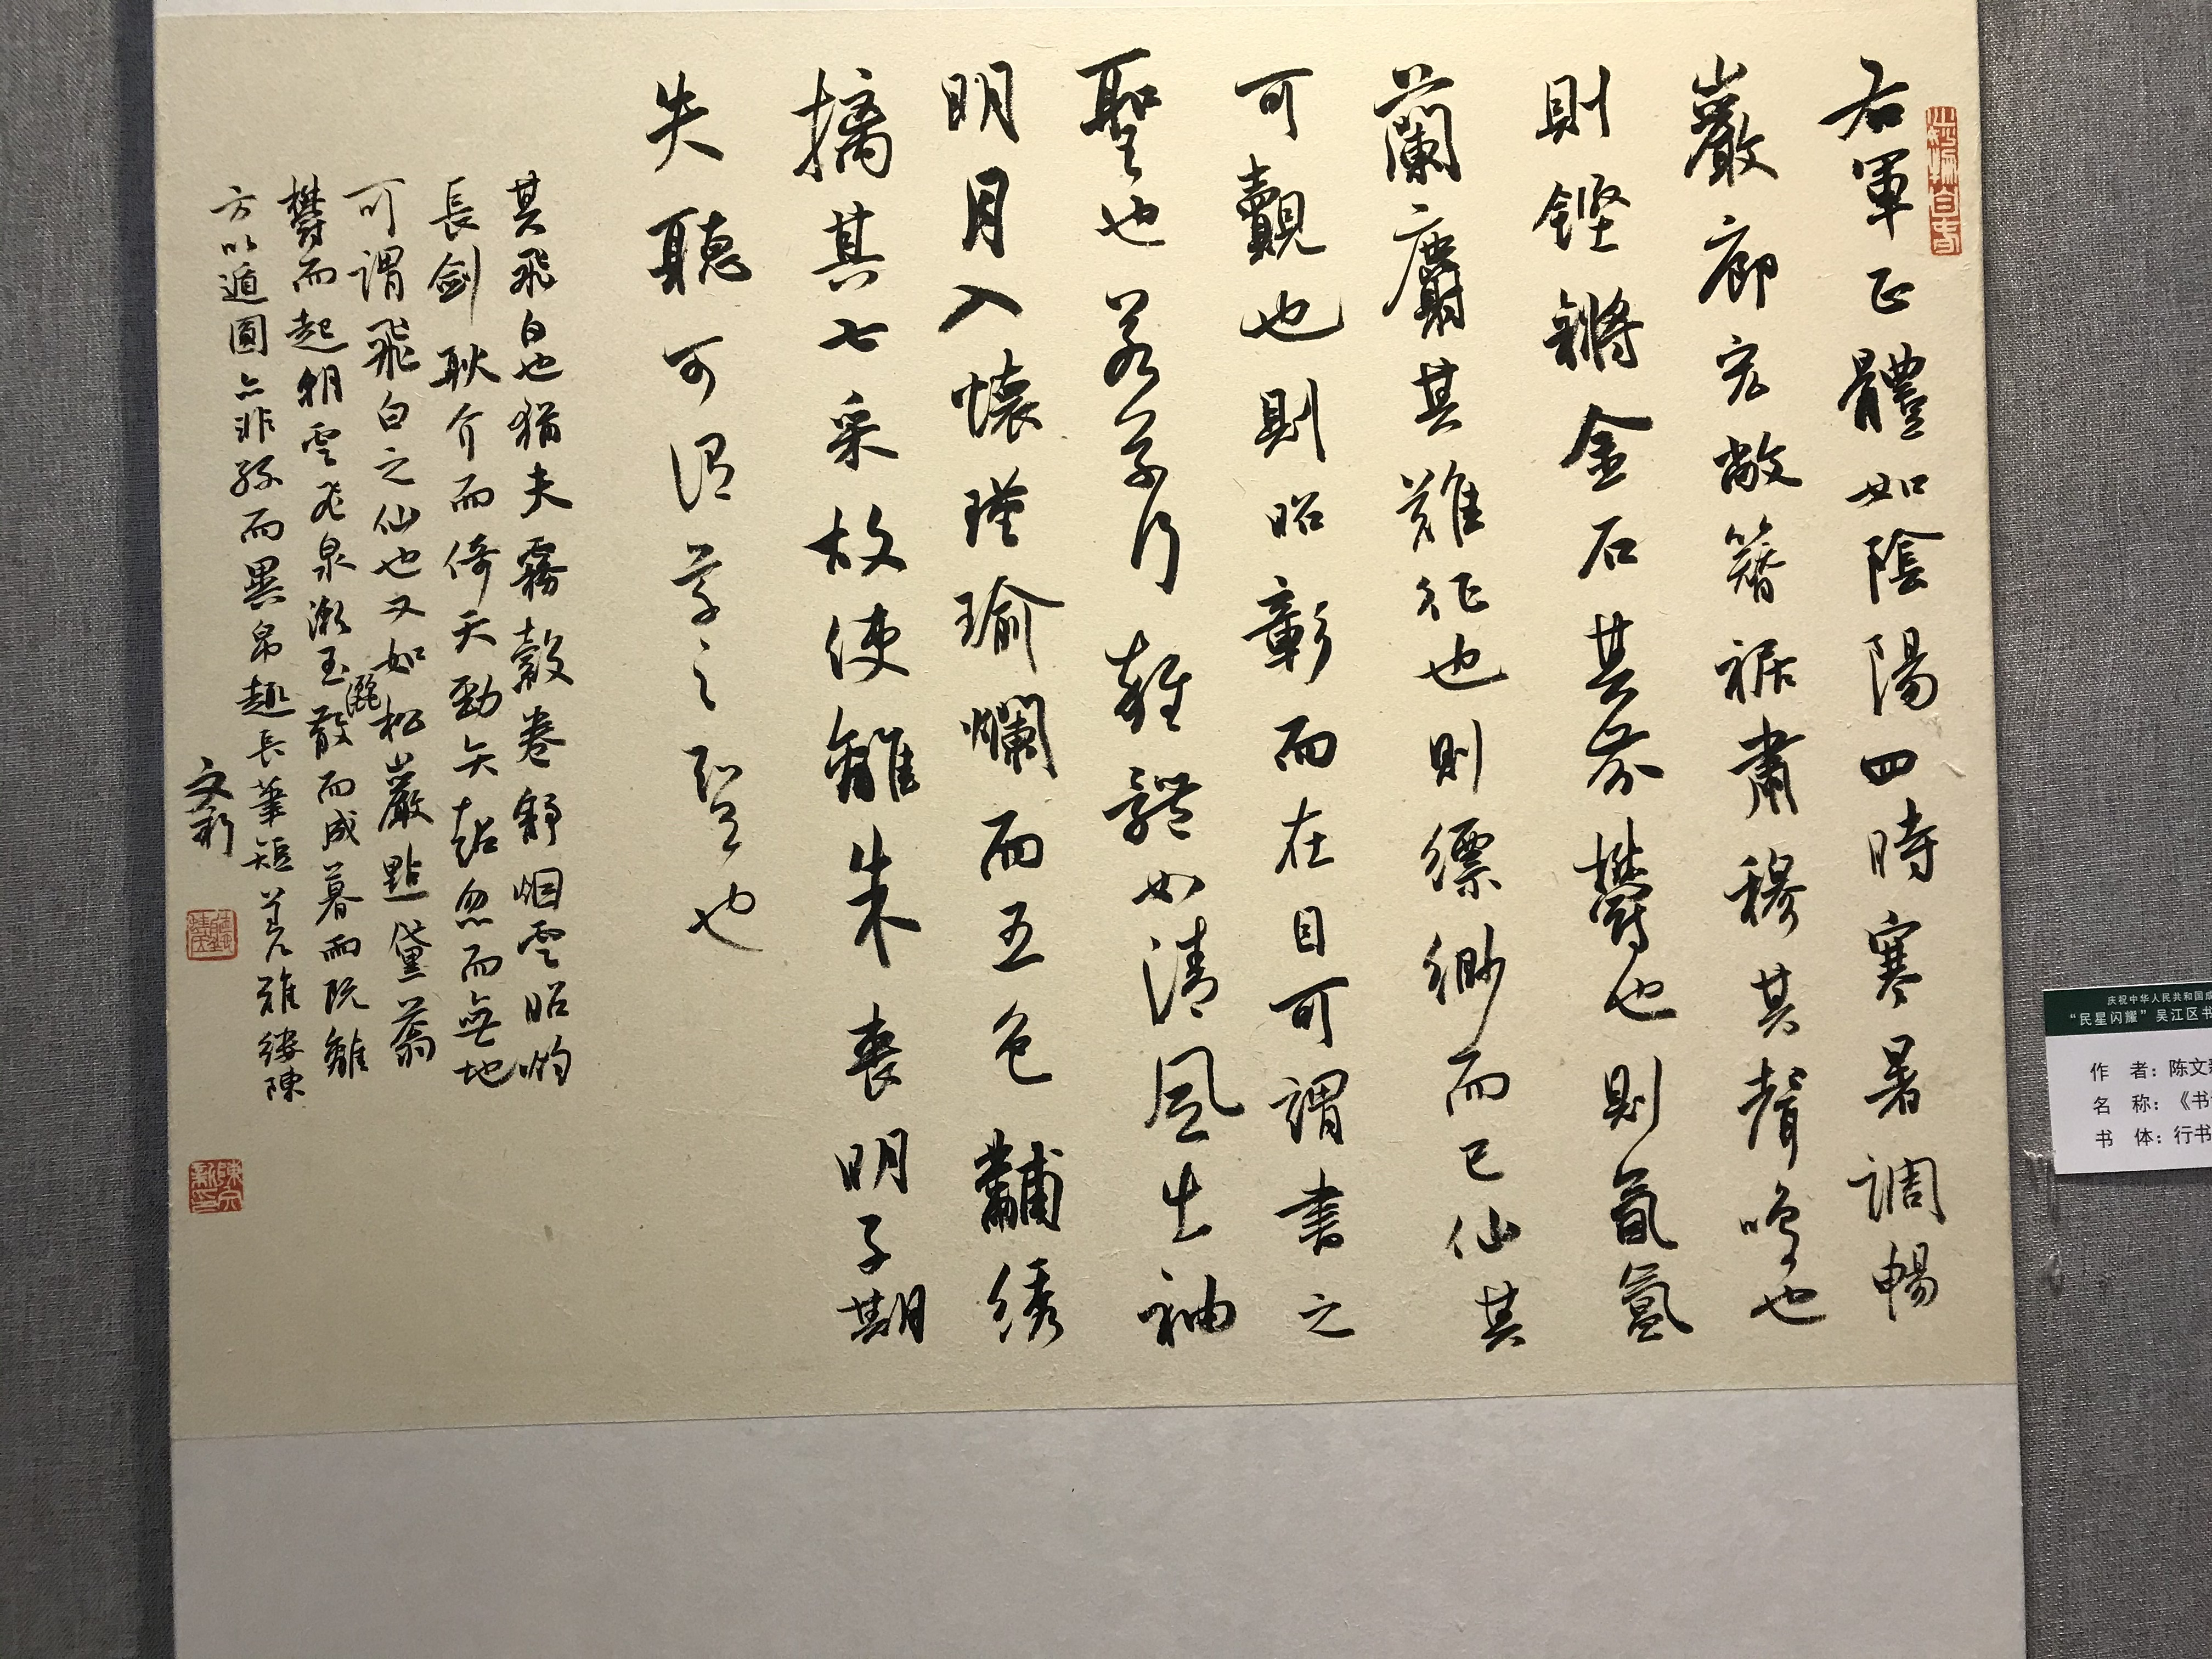 右軍正體如陰陽四時寒暑調暢
巖廊宏敞簪裾肅穆其聲鳴也
則鏗鏘金石其芬欝也則氤氳
蘭麝其難征也則縹緲而已仙其
可覿也則昭彰而在目可謂書之
聖也若草行雜體如清風出袖
明月入懷瑾瑜爛而五色黼绣
摛其七采故使離朱喪明子期
失聽可謂草之聖也
其飛白也猶夫霧縠卷舒烟雲昭灼
長劍耿介而倚天勁矢超忽而無地
可謂飛白之仙也又如松巖點黛蓊
欝而起朝雲飛泉漱玉散而成暮而既離
灑
方以遁圓亦非絲而異帛趣長筆短差難縷陳
文新
庆祝中华人民共和国成
“民星闪耀”吴江区书
作 者：陈文新
名 称：《书
书 体：行书